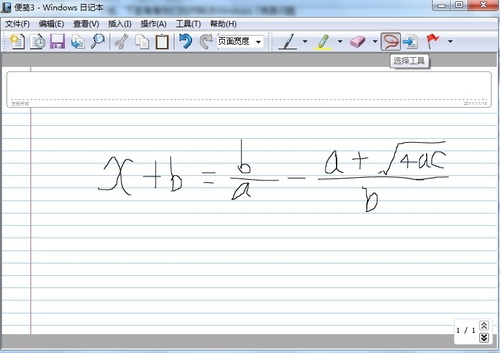 便笺3 - Windows 日记本
文件(F) 编辑(E) 查看(V) 插入(I) 操作(A) 工具(T) 帮助(H)
页面宽度
选择工具
2011/11/14
x + b = b/a - (a + √4ac)/b
1 / 1